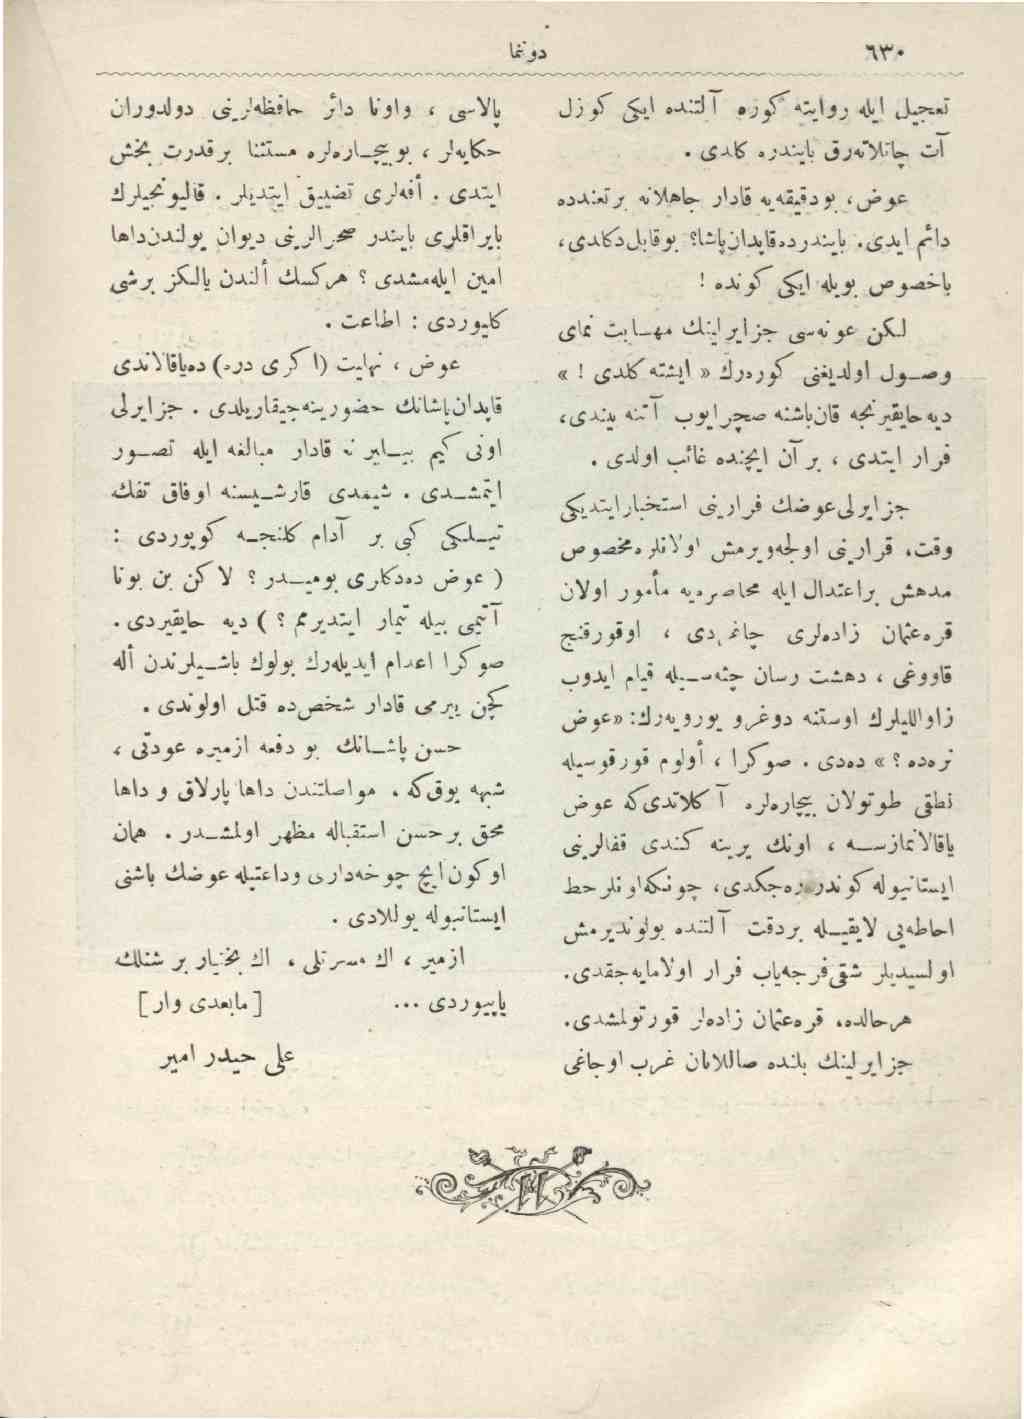 ٦٣٠
دوننما
تعجيل ايله روايته كوره آلتنده ايكى كوزل
آت چاتلاتەرق بايندره كلدى .
عوض، بودقيقه‌يه قادار جاهلانه برتعندده
دائم ايدى. بايندرده‌قاپدان‌پاشا؟ بوقابل‌دكلدى،
باخصوص بويله ايكى كونده !
لكن عونه‌سى جزايرلينك مهابت نماى
وصول اولديغنى كوره‌رك « ايشته كلدى ! »
ديه حايقيرنجه قان‌باشنه صچرايوب آتنه بيندى،
فرار ايتدى ، بر آن ايچنده غائب اولدى .
جزايرلى‌عوضك فرارينى استخبارايتديكى
وقت، قرارينى اولجه‌ويرمش اولانلره‌مخصوص
مدهش براعتدال ايله محاصره‌يه مأمور اولان
قره‌عثمان زاده‌لرى چاغردى ، اوقورقنج
قاووغى ، دهشت رسان جثه‌سيله قيام ايدوب
زاواللیلرك اوستنه دوغرو يورويه‌رك: «عوض
نره‌ده ؟ » ده‌دى . صوكرا ، أولوم قورقوسيله
نطقى طوتولان بيچاره‌لره آكلاتدى‌كه عوض
ياقالانمازسه ، اونك يرينه كندى قفالرينى
ايستانبوله كوندره‌جكدى، چونكه‌اونلرحط
احاطه‌يى لايقيله بردقت آلتنده بولونديرمش
اولسيديلر شقى‌فرجه‌ياب فرار اولامايه‌جقدى.
هرحالده، قره‌عثمان زاده‌لر قورتولمشدى.
جزايرلينك بلنده صاللانان غرب اوجاغى
پالاسى ، واوكا دائر حافظه‌لرينى دولدوران
حكايه‌لر ، بوبيچاره‌لره مستثنا برقدرت بخش
ايتدى . أفه‌لرى تضييق ايتديلر . قاليونجيلرك
بايراقلرى بايندر صحرالرينى ديوان يولندن‌داها
امين ايله‌مشدى ؟ هركسك ألندن يالكز برشى
كليوردى : اطاعت .
عوض ، نهايت (اكرى دره) ده‌ياقالاندى
قاپدان‌پاشانك حضورينه‌چيقاريلدى . جزايرلى
اونى كيم بيلير نه قادار مبالغه ايله تصور
ايتمشدى . شيمدى قارشيسنه اوفاق تفك
تيلكى كبى بر آدام كلنجه كويوردى :
( عوض ده‌دكلرى بوميدر ؟ لاكن بن بوكا
آتيمى بيله تيمار ايتديرمم ؟ ) ديه حايقيردى .
صوكرا اعدام ايديله‌رك بولوك باشيلرندن أله
كچن ييرمى قادار شخص‌ده قتل اولوندى .
حسن پاشانك بو دفعه ازميره عودتى ،
شبهه يوق‌كه . مواصلتندن داها پارلاق و داها
محق برحسن استقباله مظهر اولمشدر . همان
اوكون‌ايچ چوخه‌دارى وداعتيله عوضك باشنى
ايستانبوله يوللادى .
ازمير ، اك مسرتلى ، اك بختيار بر شنلك
ياپيوردى ...
[ مابعدى وار ]
على حيدر امير